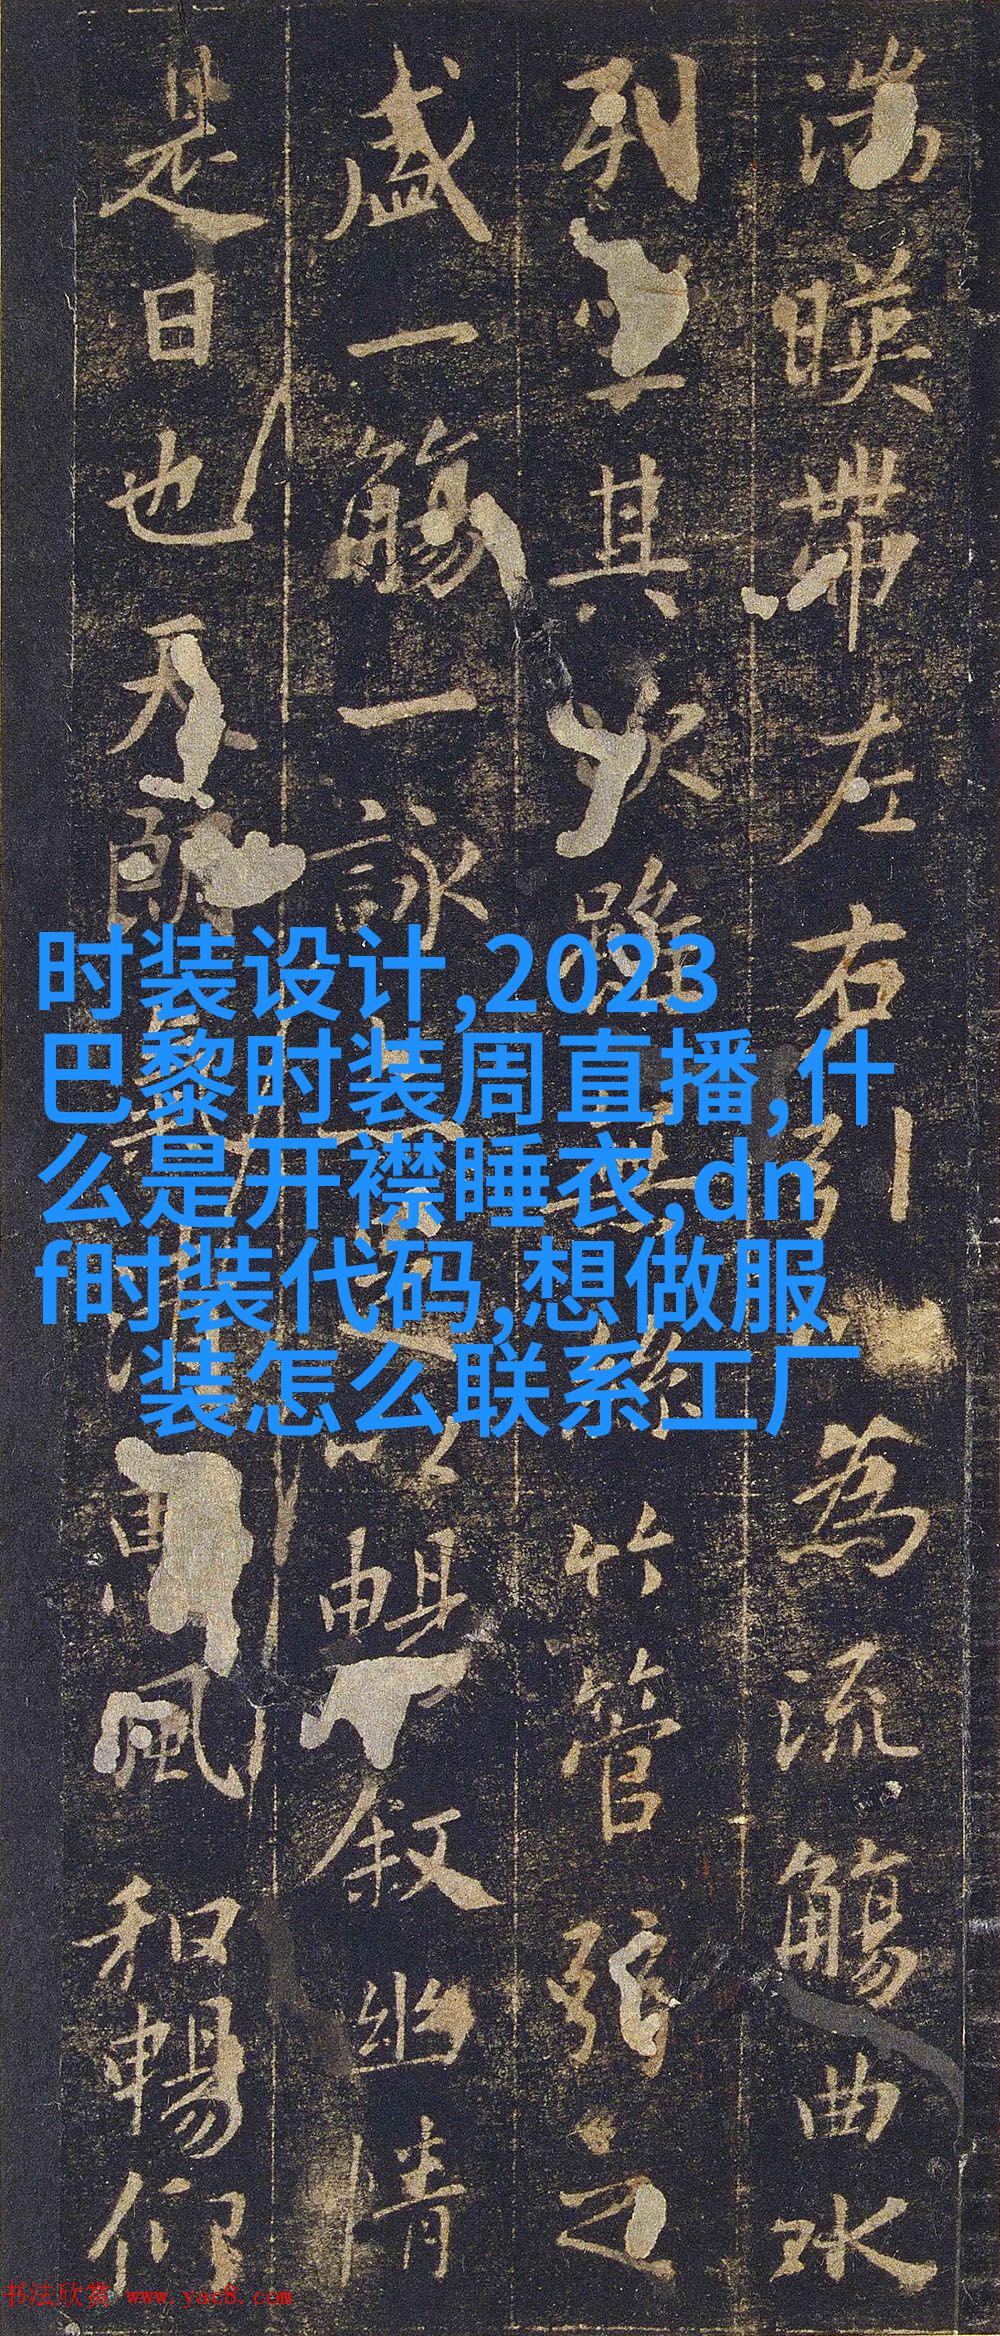 湍暎帶左右引以為流觴曲水
列坐其次雖無絲竹管弦之
盛一觴一詠亦足以暢敘幽情
是日也天朗氣清惠風和暢仰
时装设计,2023
巴黎时装周直播,什
么是开襟睡衣,dn
f时装代码,想做服
装怎么联系工厂
书法欣赏 www.yac8.com